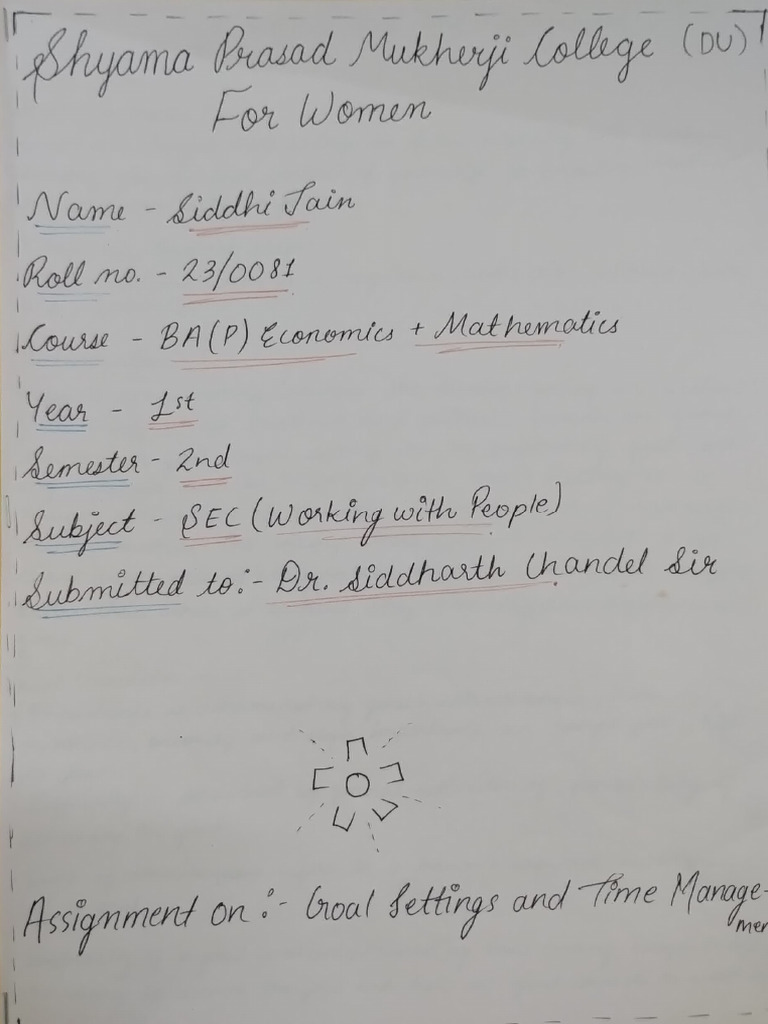 Shyama Prasad Mukherji College (DU)
For Women
Name - Siddhi Jain
Roll no. - 23/0081
Course - BA(P) Economics + Mathematics
Year - 1st
Semester - 2nd
Subject - SEC (Working with People)
Submitted to:- Dr. Siddharth Chandel Sir
Assignment on :- Goal Settings and Time Manage-
men